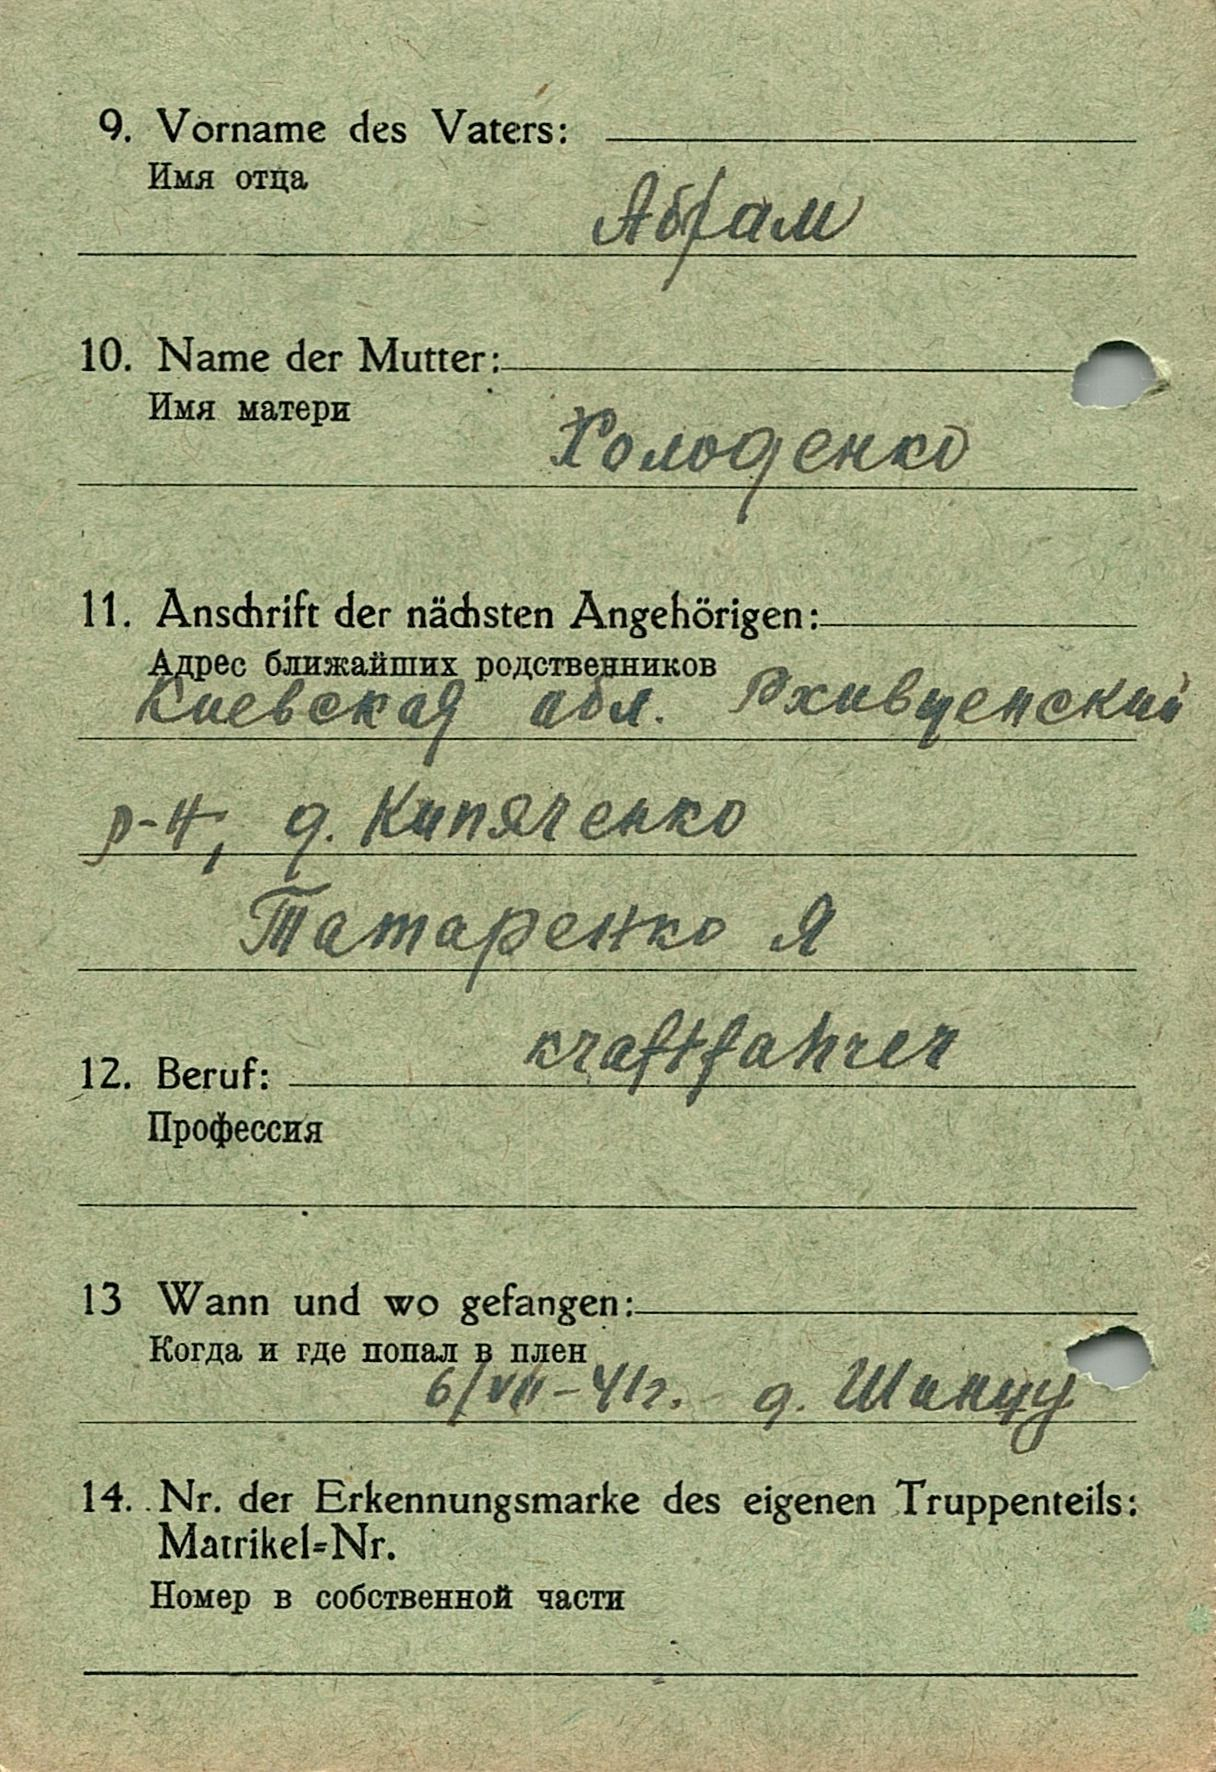 9. Vorname des Vaters:
Имя отца
Абрам
10. Name der Mutter:
Имя матери
Холоденко
11. Anschrift der nächsten Angehörigen:
Адрес ближайших родственников
Киевская абл. Рживщенский
р-н, д. Кипяченко
Татаренко Я
kraftfahrer
12. Beruf:
Профессия
13 Wann und wo gefangen:
Когда и где попал в плен
6/VII-41г. д.
14. Nr. der Erkennungsmarke des eigenen Truppenteils:
Matrikel=Nr.
Номер в собственной части